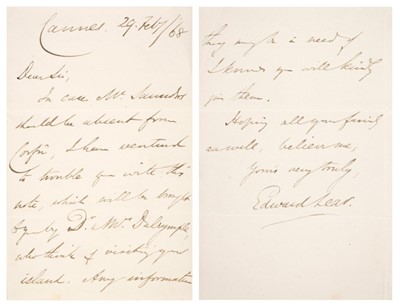 Cannes. 29. Feby/68
Dear Sir,
In case Mr. Saunders
should be absent from
Corfu, I have ventured
to trouble you with this
note, which will be brought
by Dr. & Mrs. Dalrymple,
who think of visiting your
island. Any information
they might be in need of
I know you will kindly
give them.
Hoping all your family
are well, believe me,
Yours very truly,
Edward Lear.